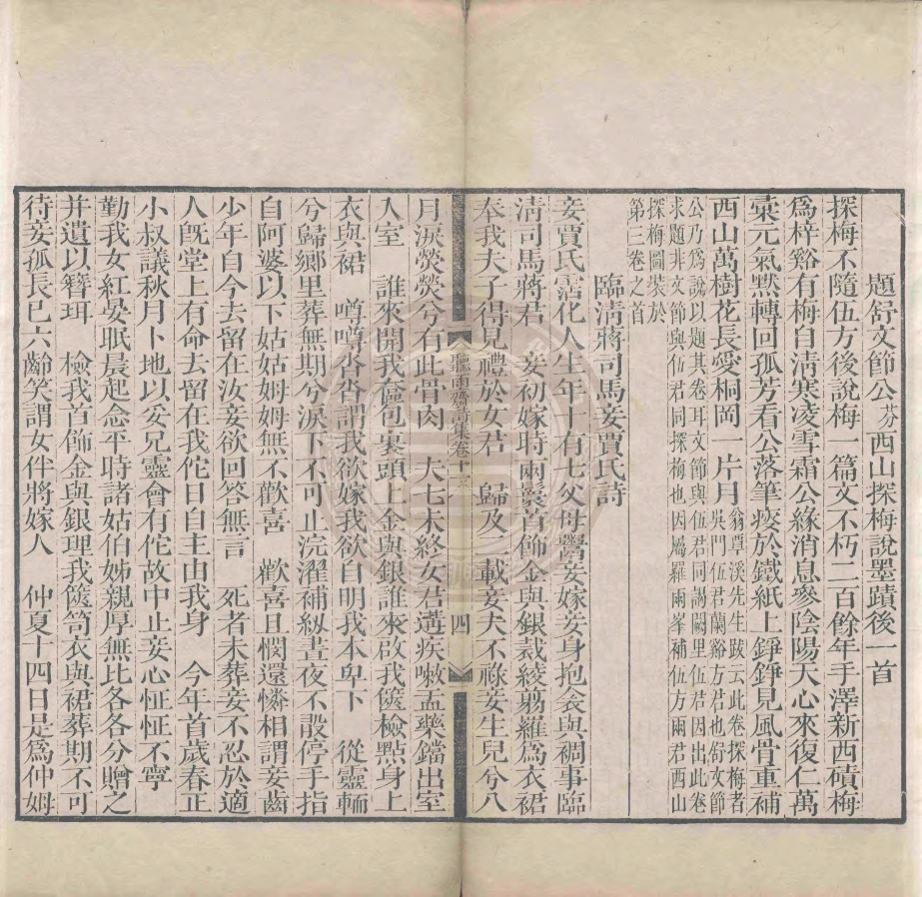 題舒文節公芬西山探梅說墨蹟後一首
探梅不隨伍方後說梅一篇文不朽二百餘年手澤新西磧梅
爲梓谿有梅自清寒凌雪霜公緣消息參陰陽天心來復仁萬
彙元氣默轉回孤芳看公落筆瘐於鐵紙上錚錚見風骨重補
西山萬樹花長愛桐岡一片月翁覃溪先生跋云此卷探梅者吳門伍君蘭谿方君也舒文節
公乃爲說以題其卷耳文節與伍君同謁闕里伍君因出此卷
求題非文節與伍君同探梅也因屬羅兩峯補伍方兩君西山
探梅圖裝於
第三卷之首
臨淸蔣司馬妾賈氏詩
妾賈氏霑化人生年十有七父母鬻妾嫁妾身抱衾與裯事臨
淸司馬將君　妾初嫁時兩鬟首飾金與銀裁綾翦羅爲衣裙
奉我夫子得見禮於女君　歸及二載妾夫不祿妾生兒兮八
聽雨齋詩集卷十三
四
月淚熒熒兮有此骨肉　夫七未終女君遘疾嗽盂藥鐺出室
入室　誰來開我奩包裹頭上金與銀誰來啟我篋檢點身上
衣與裙　噂噂沓沓謂我欲嫁我欲自明我本卑下　從靈輀
兮歸鄉里葬無期兮淚下不可止浣濯補紉晝夜不敢停手指
自阿婆以下姑姑姆姆無不歡喜　歡喜且憫還憐相謂妾齒
少年自今去留在汝妾欲回答無言　死者未葬妾不忍於適
人旣堂上有命去留在我佗日自主由我身　今年首歲春正
小叔議秋月卜地以妥兄靈會有佗故中止妾心怔怔不寧
勤我女紅晏眠晨起念平時諸姑伯姊親厚無比各各分贈之
幷遺以簪珥　檢我首飾金與銀理我篋笥衣與裙葬期不可
待妾孤長已六齡笑謂女伴將嫁人　仲夏十四日是爲仲姆